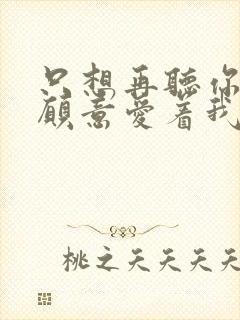 只想再聽你
願意愛着我
桃之夭夭夭夭